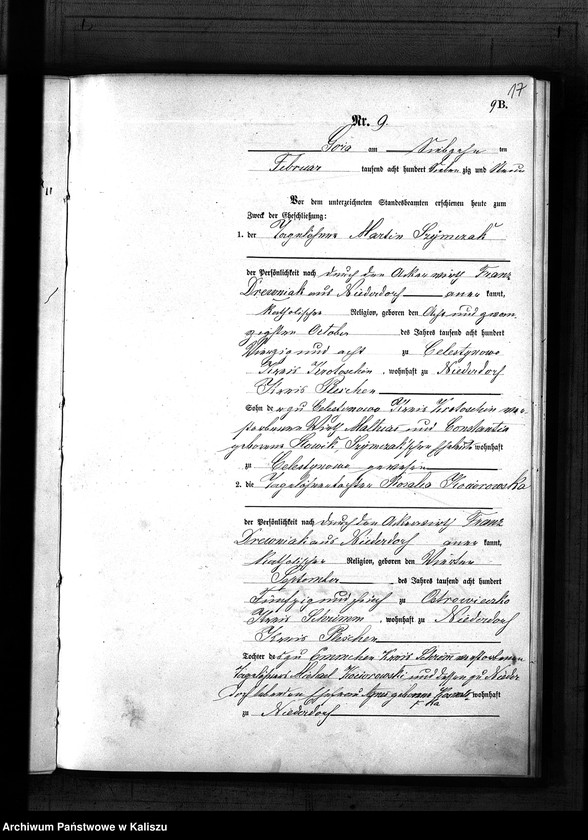 17
9 B.
Nr. 9.
Gora am Siebzehn ten
Februar tausend acht hundert sieben zig und Neun
Vor dem unterzeichneten Standesbeamten erschienen heute zum
Zweck der Eheschließung:
1. der Tagelöhner Martin Szymczak
der Persönlichkeit nach durch den Ackerwirth Franz
Drewniak aus Niederdorf aner kannt,
katholischer Religion, geboren den Acht und zwan
zigsten October des Jahres tausend acht hundert
Vierzig und acht zu Celestynowo
Kreis Krotoschin, wohnhaft zu Niederdorf
Kreis Pleschen
Sohn des zu Celestynowo Kreis Krotoschin ver
storbenen Wirth Mathias und Constantia
geborene Szymczak'schen Eheleute wohnhaft
zu Celestynowo gewesen
2. die Tagelöhnertochter Rosalia Kociorowska
der Persönlichkeit nach durch den Ackerwirth Franz
Drewniak aus Niederdorf aner kannt,
katholischer Religion, geboren den Vierten
September des Jahres tausend acht hundert
Fünfzig und zu Ostrowieczko
Kreis Schrimm, wohnhaft zu Niederdorf
Kreis Pleschen
Tochter des zu Emmchen Kreis Schrimm verstorbenen
Tagelöhners Michael Kociorowski und dessen zu Nieder
dorf lebenden Ehefrau Agnes geborene wohnhaft
ka
zu Niederdorf
Archiwum Państwowe w Kaliszu